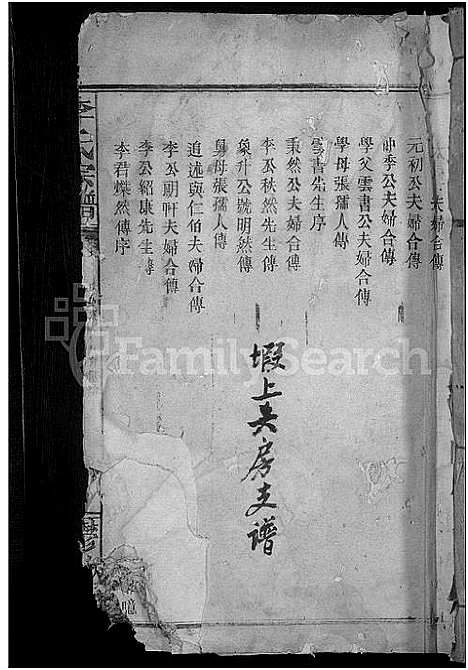 夫婦合傳
元初公夫婦合傳
仲季公夫婦合傳
學父雲書公夫婦合傳
學母張孺人傳
雲書先生序
秉然公夫婦合傳
李公秋然先生傳
象升公號明然傳
舅母張孺人傳
追述與仁伯夫婦合傳
李公明軒夫婦合傳
李公紹康先生傳
李君燦然傳序
塅上美房支谱
李氏宗譜
FamilySearch